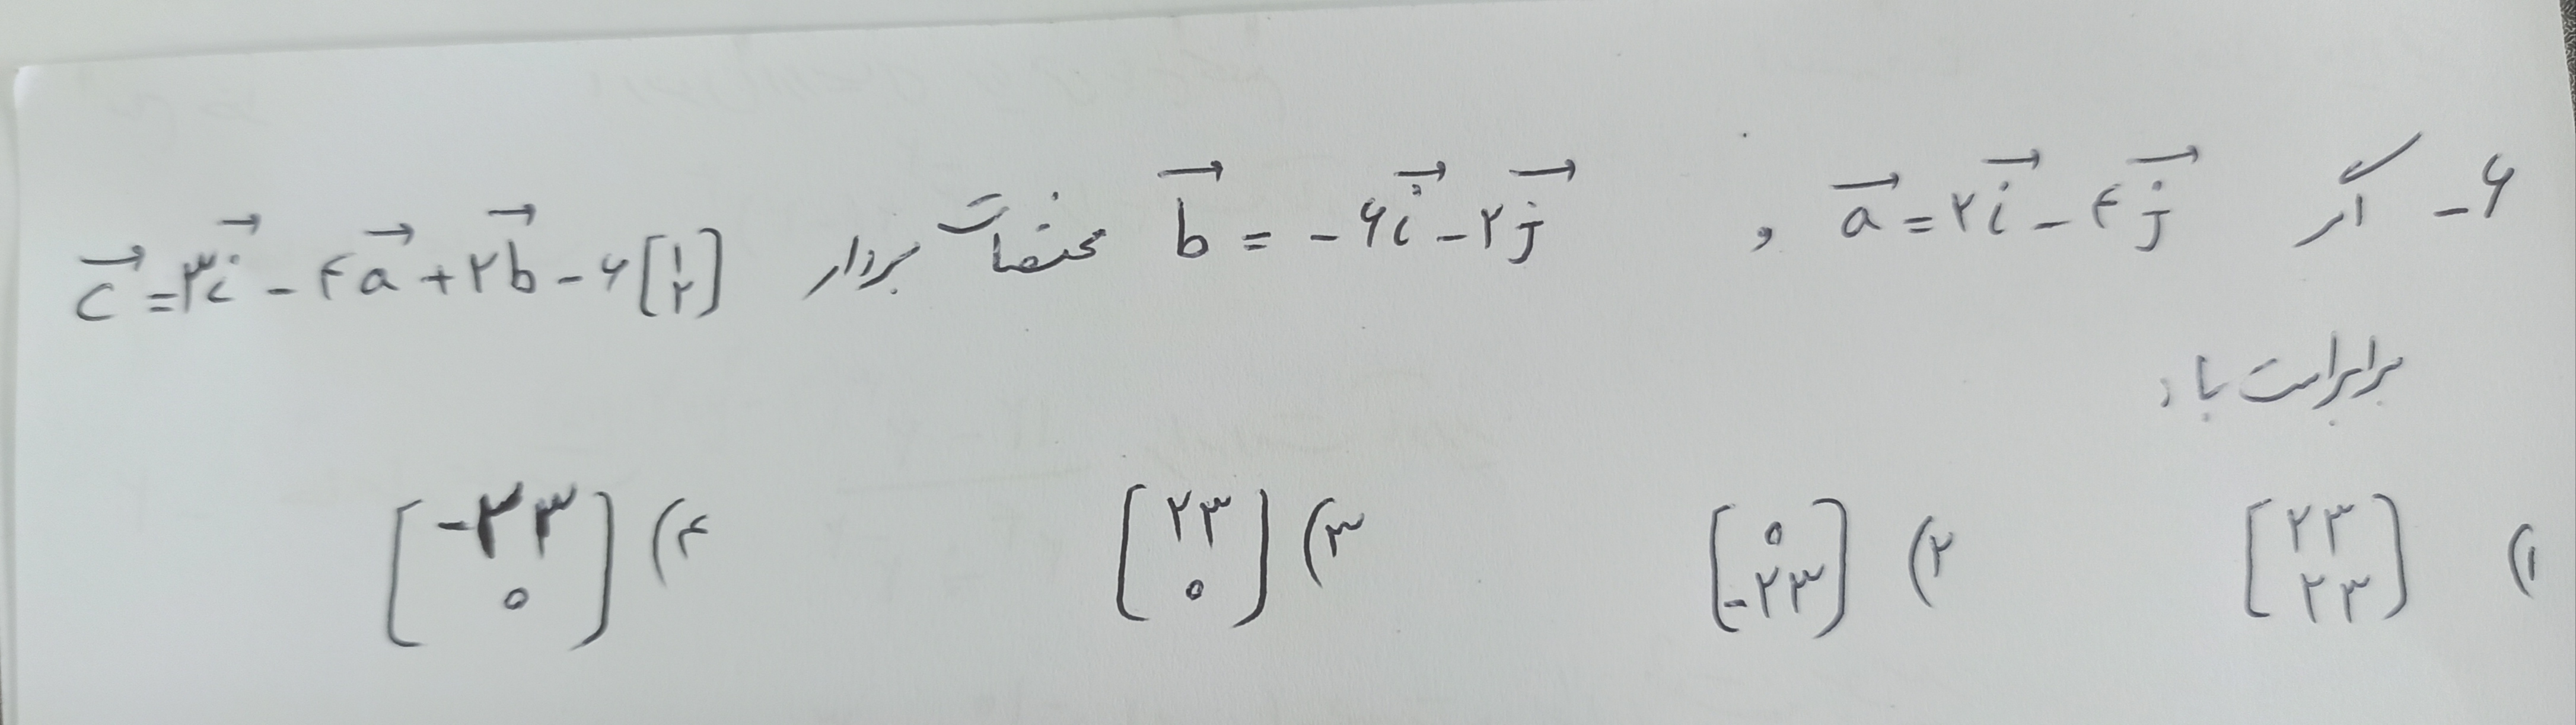 ۶- اگر a⃗ = ۲i⃗ - ۴j⃗ و b⃗ = -۶i⃗ - ۲j⃗ مختصات بردار c⃗ = ۳i⃗ - ۴a⃗ + ۲b⃗ - ۶[۱ ۲]
برابر است با:
۱) [۲۳ ۲۳] ۲) [۰ -۲۳] ۳) [۲۳ ۰] ۴) [-۲۳ ۰]